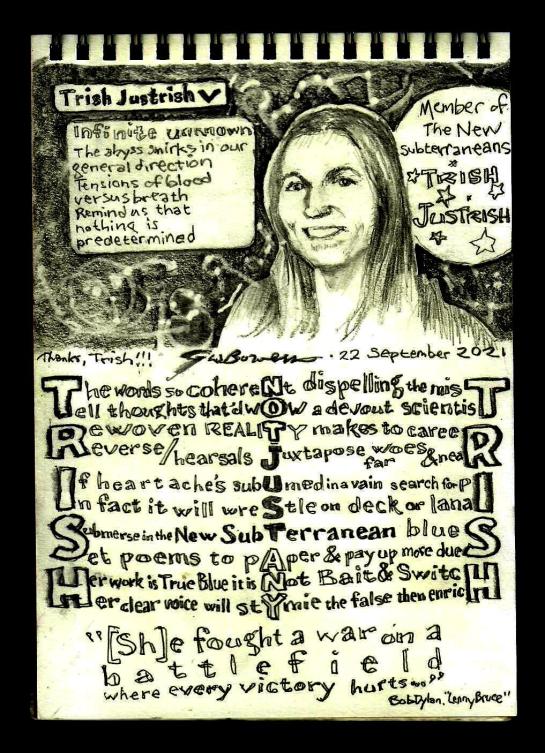 Trish Justrish V
Infinite unknown
The abyss smirks in our
general direction
Tensions of blood
versus breath
Remind us that
nothing is
predetermined
Member of
The New
Subterraneans
TRISH
JUSTRISH
Thanks, Trish!!! 22 September 2021
The words so coherent dispelling the mist
Tell thoughts that'd wow a devout scientist
Rewoven REALITY makes to career
Reverse/hearsals Juxtapose woes far & near
If heartache's subumed in a vain search for PI
In fact it will wrestle on deck or lanai
Submerse in the New SubTerranean blues
Set poems to pAper & pay up more dues
Her work is True Blue it is Not Bait & Switch
Her clear voice will stYmie the false then enrich
"[Sh]e fought a war on a
battlefield
where every victory hurts..."
Bob Dylan, "Lenny Bruce"